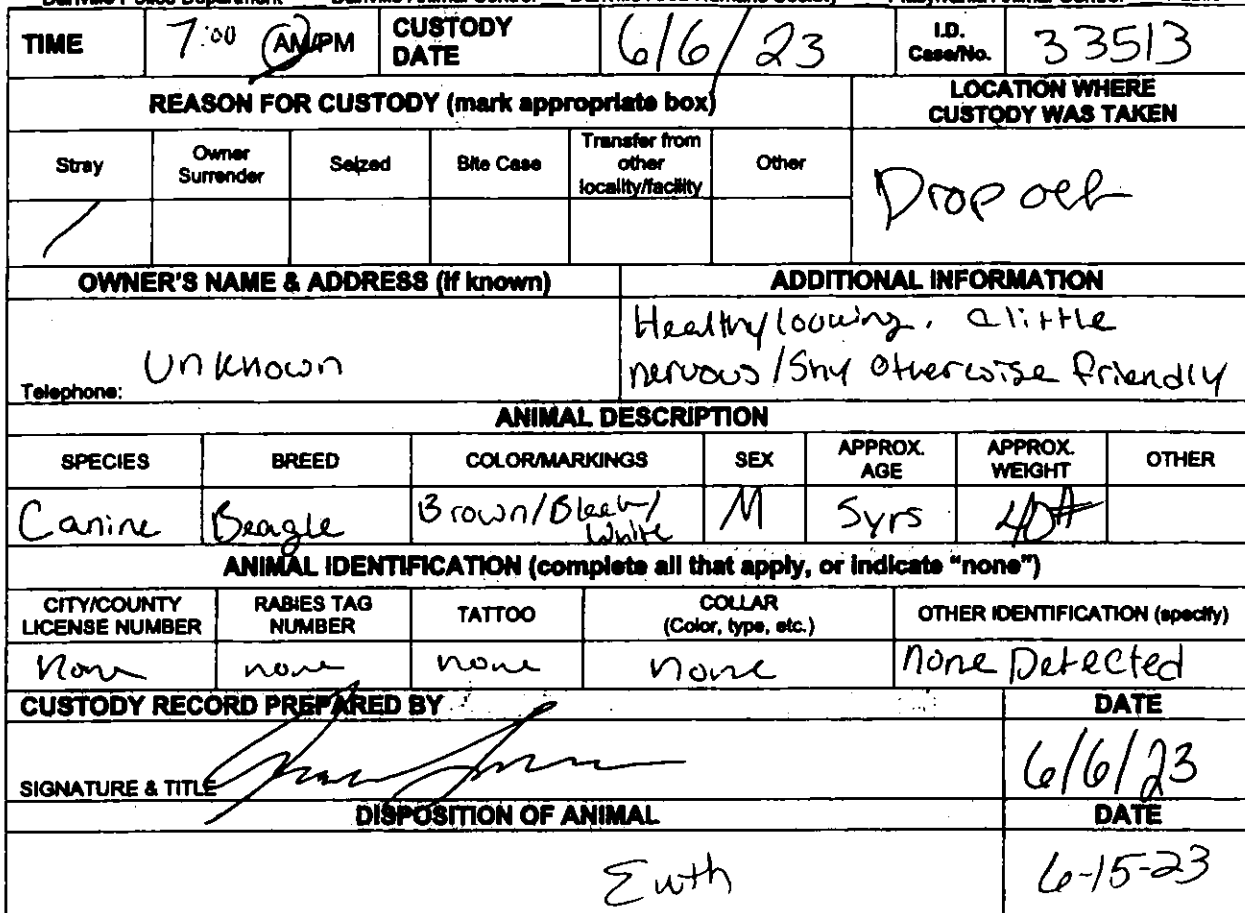 TIME 7:00 AM/PM CUSTODY DATE 6/6/23 I.D. Case/No. 33513
REASON FOR CUSTODY (mark appropriate box) LOCATION WHERE CUSTODY WAS TAKEN
Stray Owner Surrender Seized Bite Case Transfer from other locality/facility Other
/ Drop off
OWNER'S NAME & ADDRESS (if known) ADDITIONAL INFORMATION
Healthy looking. a little
Unknown nervous/Shy otherwise friendly
Telephone:
ANIMAL DESCRIPTION
SPECIES BREED COLOR/MARKINGS SEX APPROX. AGE APPROX. WEIGHT OTHER
Canine Beagle Brown/Black/White M 5yrs 40#
ANIMAL IDENTIFICATION (complete all that apply, or indicate "none")
CITY/COUNTY LICENSE NUMBER RABIES TAG NUMBER TATTOO COLLAR (Color, type, etc.) OTHER IDENTIFICATION (specify)
None none none none none Detected
CUSTODY RECORD PREPARED BY DATE
SIGNATURE & TITLE 6/6/23
DISPOSITION OF ANIMAL DATE
Euth 6-15-23